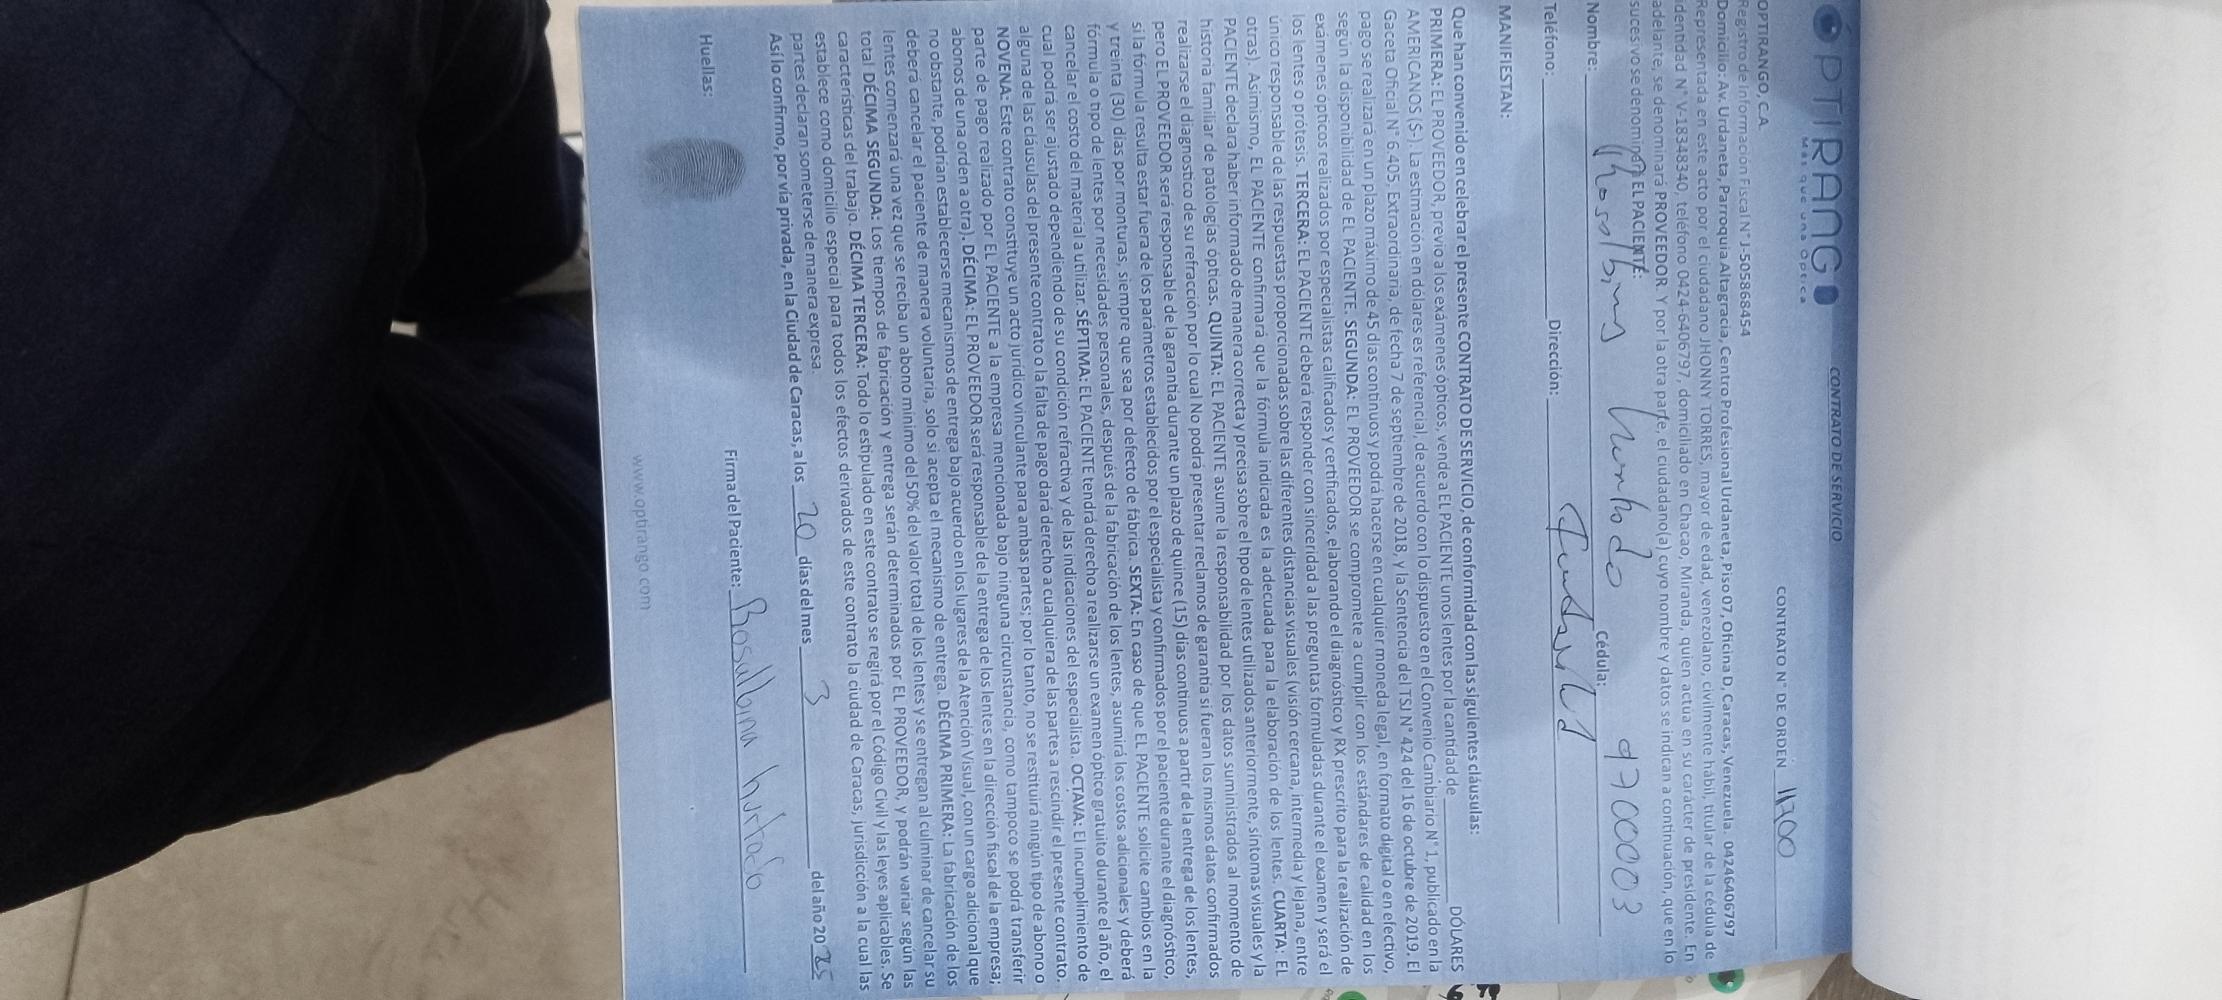 OPTIRANGO
Más que una Óptica
CONTRATO DE SERVICIO
CONTRATO N° DE ORDEN
OPTIRANGO, C.A.
Registro de Información Fiscal N° J-505868454
Domicilio: Av. Urdaneta, Parroquia Altagracia, Centro Profesional Urdaneta, Piso 07, Oficina D, Caracas, Venezuela. 04246406797
Representada en este acto por el ciudadano JHONNY TORRES, mayor de edad, venezolano, civilmente hábil, titular de la cédula de
identidad N° V-18348340, teléfono 0424-6406797, domiciliado en Chacao, Miranda, quien actúa en su carácter de presidente. En
adelante, se denominará PROVEEDOR. Y por la otra parte, el ciudadano(a) cuyo nombre y datos se indican a continuación, que en lo
sucesivo se denominará EL PACIENTE:
Nombre: Rosalbina hurtado Cédula: 9700003
Teléfono: Dirección:
MANIFIESTAN:
Que han convenido en celebrar el presente CONTRATO DE SERVICIO, de conformidad con las siguientes cláusulas:
PRIMERA: EL PROVEEDOR, previo a los exámenes ópticos, vende a EL PACIENTE unos lentes por la cantidad de DÓLARES
AMERICANOS ($-). La estimación en dólares es referencial, de acuerdo con lo dispuesto en el Convenio Cambiario N° 1, publicado en la
Gaceta Oficial N° 6.405, Extraordinaria, de fecha 7 de septiembre de 2018, y la Sentencia del TSJ N° 424 del 16 de octubre de 2019. El
pago se realizará en un plazo máximo de 45 días continuos y podrá hacerse en cualquier moneda legal, en formato digital o en efectivo,
según la disponibilidad de EL PACIENTE. SEGUNDA: EL PROVEEDOR se compromete a cumplir con los estándares de calidad en los
exámenes ópticos realizados por especialistas calificados y certificados, elaborando el diagnóstico y RX prescrito para la realización de
los lentes o prótesis. TERCERA: EL PACIENTE deberá responder con sinceridad a las preguntas formuladas durante el examen y será el
único responsable de las respuestas proporcionadas sobre las diferentes distancias visuales (visión cercana, intermedia y lejana, entre
otras). Asimismo, EL PACIENTE confirmará que la fórmula indicada es la adecuada para la elaboración de los lentes. CUARTA: EL
PACIENTE declara haber informado de manera correcta y precisa sobre el tipo de lentes utilizados anteriormente, síntomas visuales y la
historia familiar de patologías ópticas. QUINTA: EL PACIENTE asume la responsabilidad por los datos suministrados al momento de
realizarse el diagnostico de su refracción por lo cual No podrá presentar reclamos de garantía si fueran los mismos datos confirmados
pero EL PROVEEDOR será responsable de la garantía durante un plazo de quince (15) días continuos a partir de la entrega de los lentes,
si la fórmula resulta estar fuera de los parámetros establecidos por el especialista y confirmados por el paciente durante el diagnóstico,
y treinta (30) días por monturas, siempre que sea por defecto de fábrica. SEXTA: En caso de que EL PACIENTE solicite cambios en la
fórmula o tipo de lentes por necesidades personales, después de la fabricación de los lentes, asumirá los costos adicionales y deberá
cancelar el costo del material a utilizar. SÉPTIMA: EL PACIENTE tendrá derecho a realizarse un examen óptico gratuito durante el año, el
cual podrá ser ajustado dependiendo de su condición refractiva y de las indicaciones del especialista. OCTAVA: El incumplimiento de
alguna de las cláusulas del presente contrato o la falta de pago dará derecho a cualquiera de las partes a rescindir el presente contrato.
NOVENA: Este contrato constituye un acto jurídico vinculante para ambas partes; por lo tanto, no se restituirá ningún tipo de abono o
parte de pago realizado por EL PACIENTE a la empresa mencionada bajo ninguna circunstancia, como tampoco se podrá transferir
abonos de una orden a otra). DÉCIMA: EL PROVEEDOR será responsable de la entrega de los lentes en la dirección fiscal de la empresa;
no obstante, podrían establecerse mecanismos de entrega bajo acuerdo en los lugares de la Atención Visual, con un cargo adicional que
deberá cancelar el paciente de manera voluntaria, solo si acepta el mecanismo de entrega. DÉCIMA PRIMERA: La fabricación de los
lentes comenzará una vez que se reciba un abono mínimo del 50% del valor total de los lentes y se entregan al culminar de cancelar su
total DÉCIMA SEGUNDA: Los tiempos de fabricación y entrega serán determinados por EL PROVEEDOR, y podrán variar según las
características del trabajo. DÉCIMA TERCERA: Todo lo estipulado en este contrato se regirá por el Código Civil y las leyes aplicables. Se
establece como domicilio especial para todos los efectos derivados de este contrato la ciudad de Caracas, jurisdicción a la cual las
partes declaran someterse de manera expresa.
Así lo confirmo, por vía privada, en la Ciudad de Caracas, a los 20 días del mes 3 del año 2025
Huellas: Firma del Paciente: Rosalbina hurtado
www.optirango.com